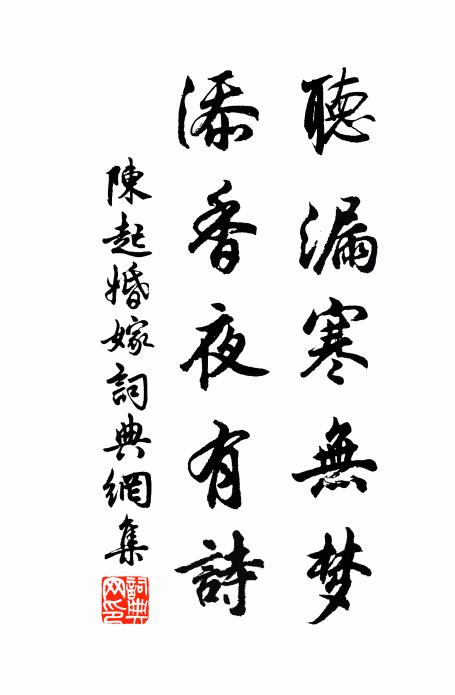 聽漏寒無梦
添香夜有詩
陳起婚嫁詞典網集
詞典网印